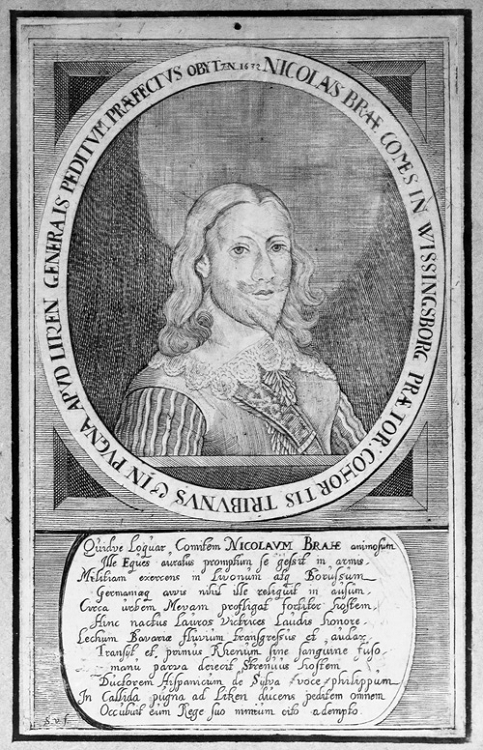 NICOLAS BRAHE COMES IN WISSINGSBORG PRÆTOR: COHORTIS TRIBVNVS & IN PVGNA APVD LITZEN GENERALIS PEDITVM PRÆFECTVS OBYT 1632
Quidve Loquar Comitem NICOLAVM BRAHE animosum
Ille Eques auratus promptum se gessit in armis
Militiam exercens in Livonum atq Borussum
Germamaq arvis nihil ille reliquit in ausum
Circa urbem Mevam profligat fortiter hostem
Hinc nactus Lauros Victrices Laudis honore
Lechum Bavariæ fluvium transgressus et audax
Transijt et primus Rhenum sine sanguine fuso
manu parva deiecit Strenuus hostem
Ductorem Hispanicum de Sylva voce philippum
In Callida pugna ad Litzen ducens peditem omnem
Occubuit cum Rege suo nimium cito adempto
S. v. f.